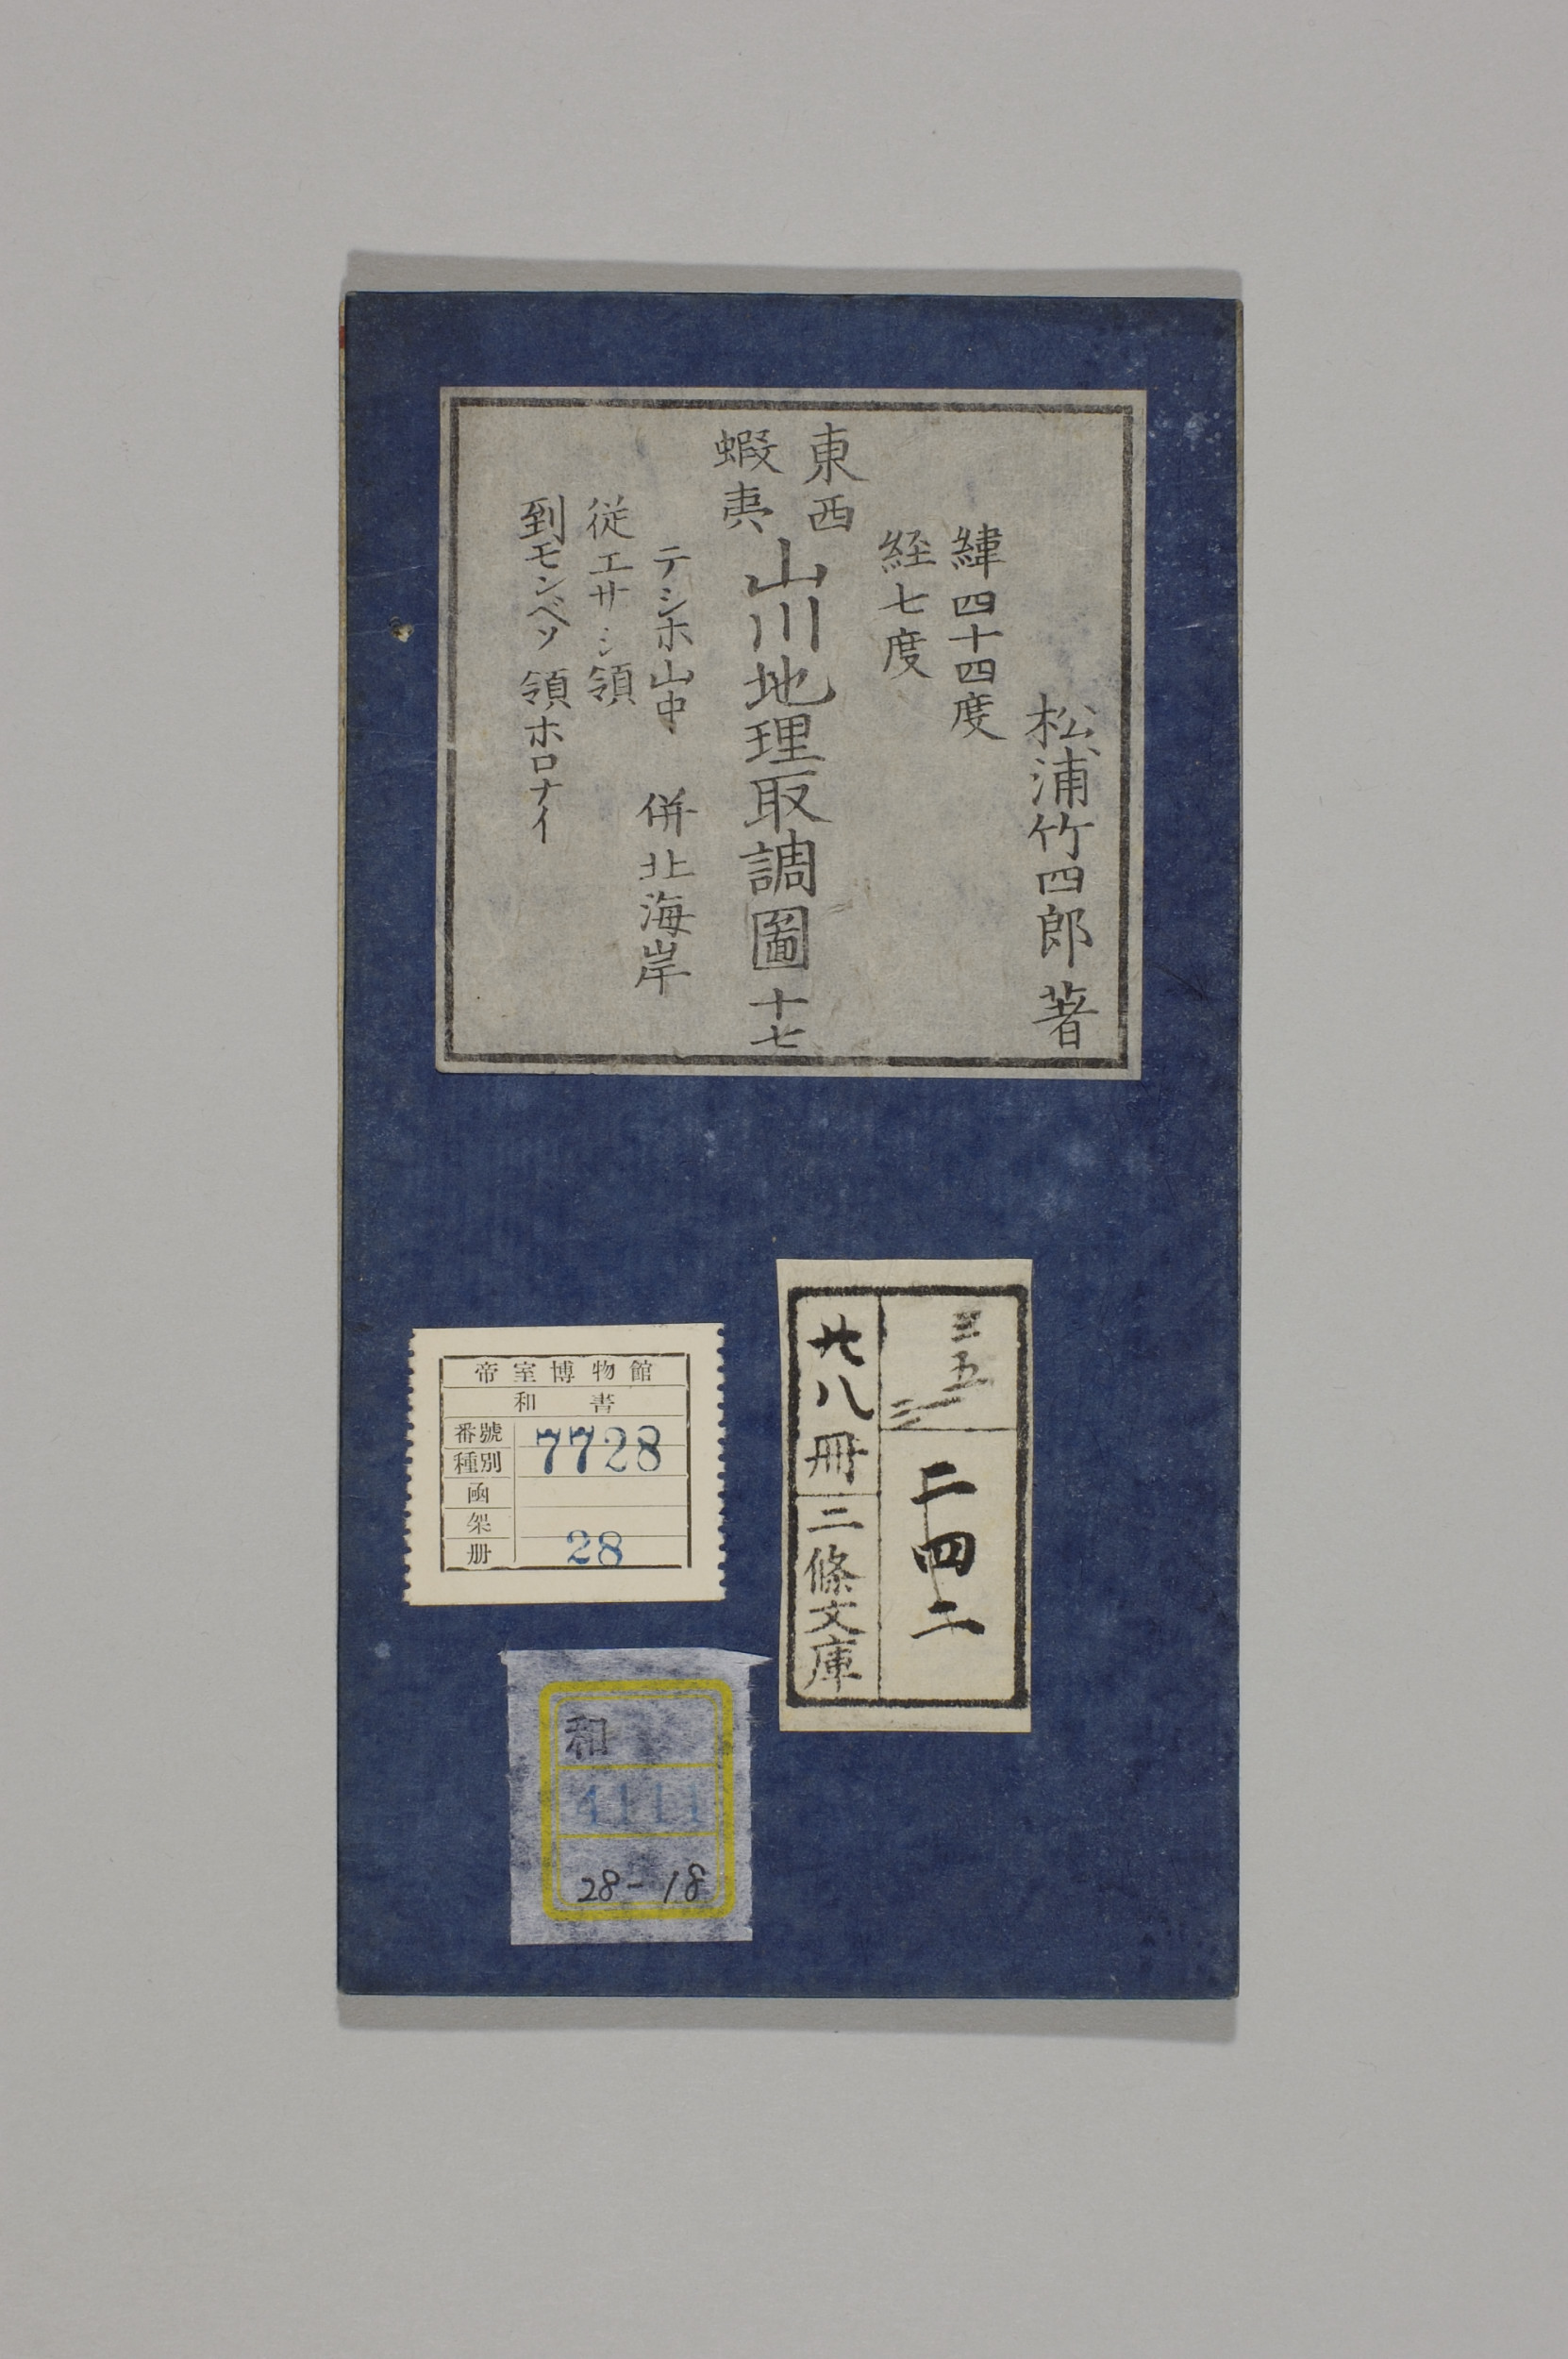 松浦竹四郎著
緯四十四度
経七度
東西
蝦夷
山川地理取調圖十七
テシホ山中 併北海岸
従エサシ領
到モンベツ領ホロナイ
三五
二四二
廿八冊
三條文庫
帝室博物館
和書
番號 7728
種別
函
架
册 28
和
4111
28-18